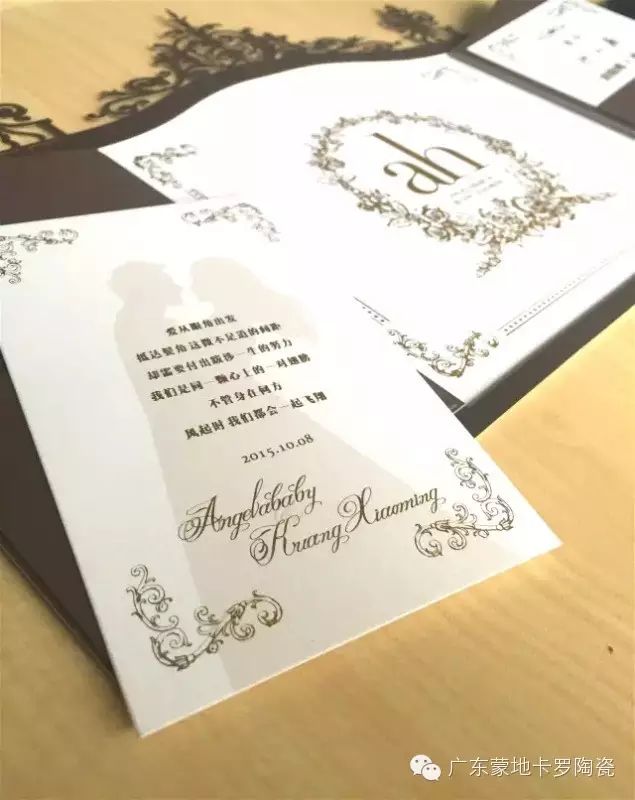 ah
爱从眼角出发
抵达鬓角 这微不足道的间距
却需要付出跋涉一生的努力
我们是同一颗心上的一对翅膀
不管身在何方
风起时 我们都会一起飞翔
2015.10.08
Angelababy
Huang Xiaoming
广东蒙地卡罗陶瓷